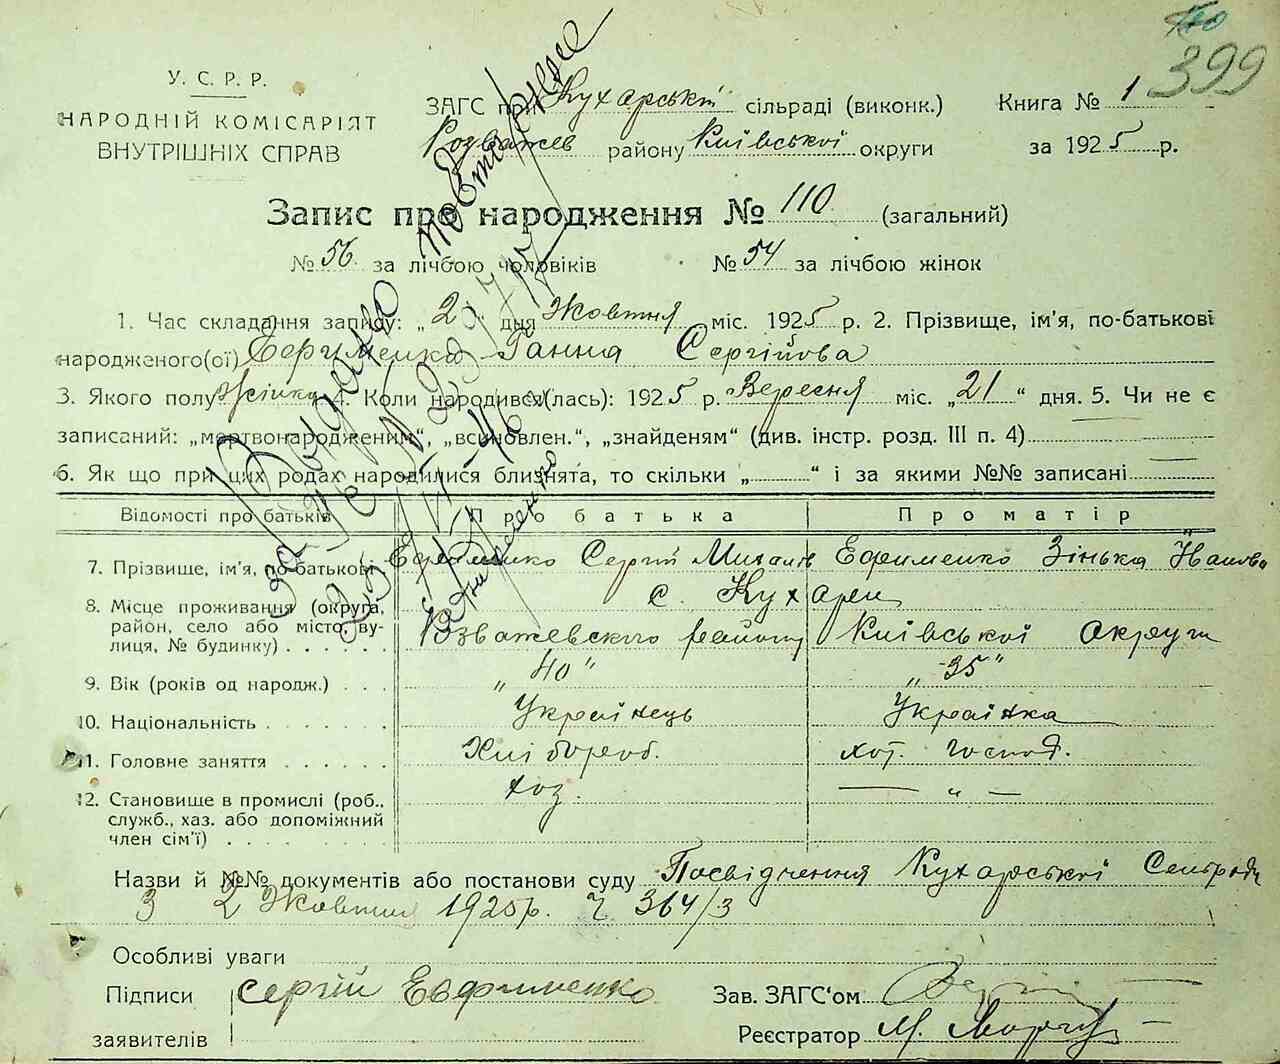 399
У. С. Р. Р.
НАРОДНІЙ КОМІСАРІЯТ
ВНУТРІШНІХ СПРАВ
ЗАГС при Кухарські сільраді (виконк.) Книга № 1
Розважев району Київської округи за 1925 р.
Запис про народження № 110 (загальний)
№ 56 за лічбою чоловіків № 54 за лічбою жінок
1. Час складання запису: „2“ дня Жовтня міс. 1925 р. 2. Прізвище, ім'я, по-батькові
народженого(ої) Ефименко Ганна Сергійова
3. Якого полу Жінка 4. Коли народився(лась): 1925 р. Вересня міс. „21“ дня. 5. Чи не є
записаний: „мертвонародженим“, „всиновлен.“, „знайденям“ (див. інстр. розд. III п. 4)
6. Як що при цих родах народилися близнята, то скільки „ “ і за якими №№ записані
Відомості про батьків Про батька Про матір
7. Прізвище, ім'я, по-батькові Сергій Михайлів Ефименко Зінька
8. Місце проживання (округа, район, село або місто вулиця, № будинку) с. Кухари
Розважевского району Київської округи
9. Вік (років од народж.) „40“ „35“
10. Національність Українець Українка
11. Головне заняття Хлібороб. хот. господ.
12. Становище в промислі (роб., служб., хаз. або допоміжний член сім'ї) хоз. — „ —
Назви й №№ документів або постанови суду Посвідчення Кухарської Сельради
З 2 Жовтня 1925 р. Ч 364/3
Особливі уваги
Підписи заявителів Сергій Евфименко
Зав. ЗАГС'ом
Реєстратор М.
Видано повторне